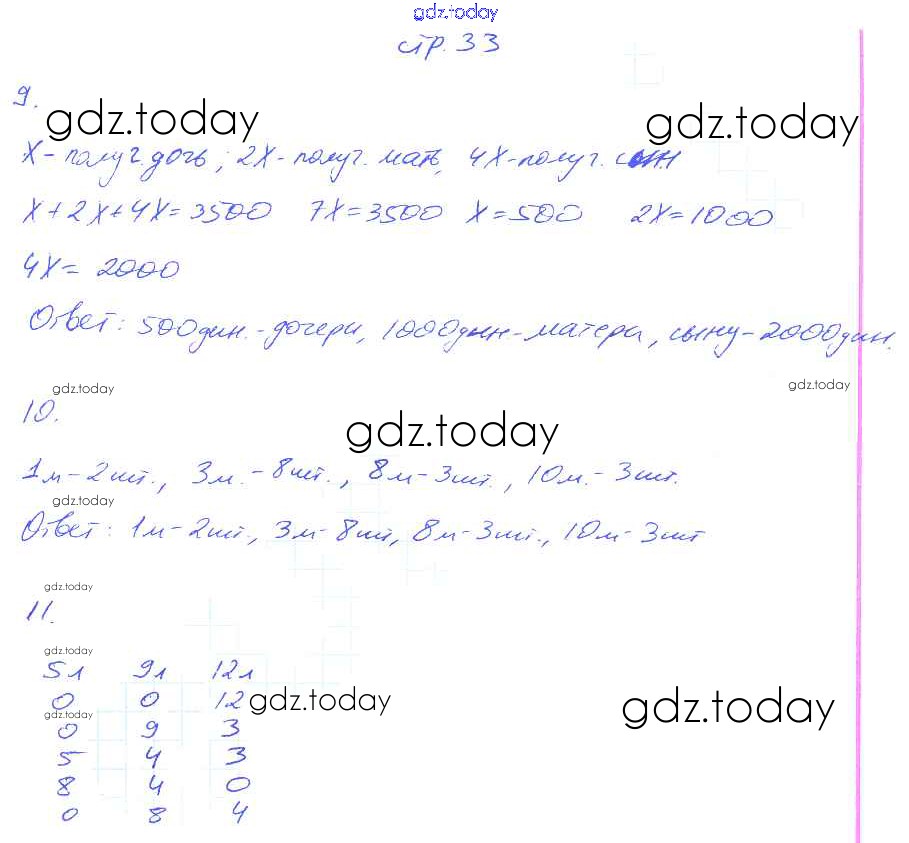 gdz.today
стр. 33
9.
gdz.today gdz.today
X - получ. дочь; 2X - получ. мать, 4X - получ. сын
X + 2X + 4X = 3500 7X = 3500 X = 500 2X = 1000
4X = 2000
Ответ: 500 дин. - дочери, 1000 дин - матери, сыну - 2000 дин.
gdz.today gdz.today
10.
gdz.today
1м - 2шт., 3м. - 8шт., 8м - 3шт., 10м. - 3шт.
gdz.today
Ответ: 1м - 2шт., 3м - 8шт, 8м - 3шт., 10м - 3шт
gdz.today
11.
gdz.today
5л 9л 12л
0 0 12 gdz.today gdz.today
gdz.today
0 9 3
5 4 3
8 4 0
0 8 4